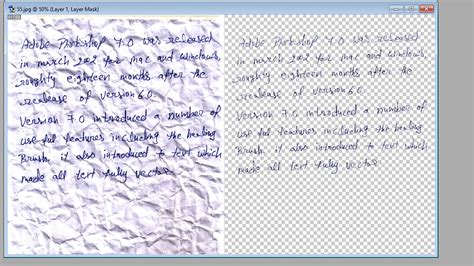 55.jpg @ 50% (Layer 1, Layer Mask)
Adobe Photoshop 7.0 was released
in march 2002 for mac and windows,
roughty eighteen months after the
realease of version 6.0.
Version 7.0 introduced a number of
use ful features including the healing
Brush. it also introduced to text which
made all text fully vector.
Adobe Photoshop 7.0 was released
in march 2002 for mac and windows,
roughty eighteen months after the
realease of version 6.0.
Version 7.0 introduced a number of
use ful features including the healing
Brush. it also introduced to text which
made all text fully vector.